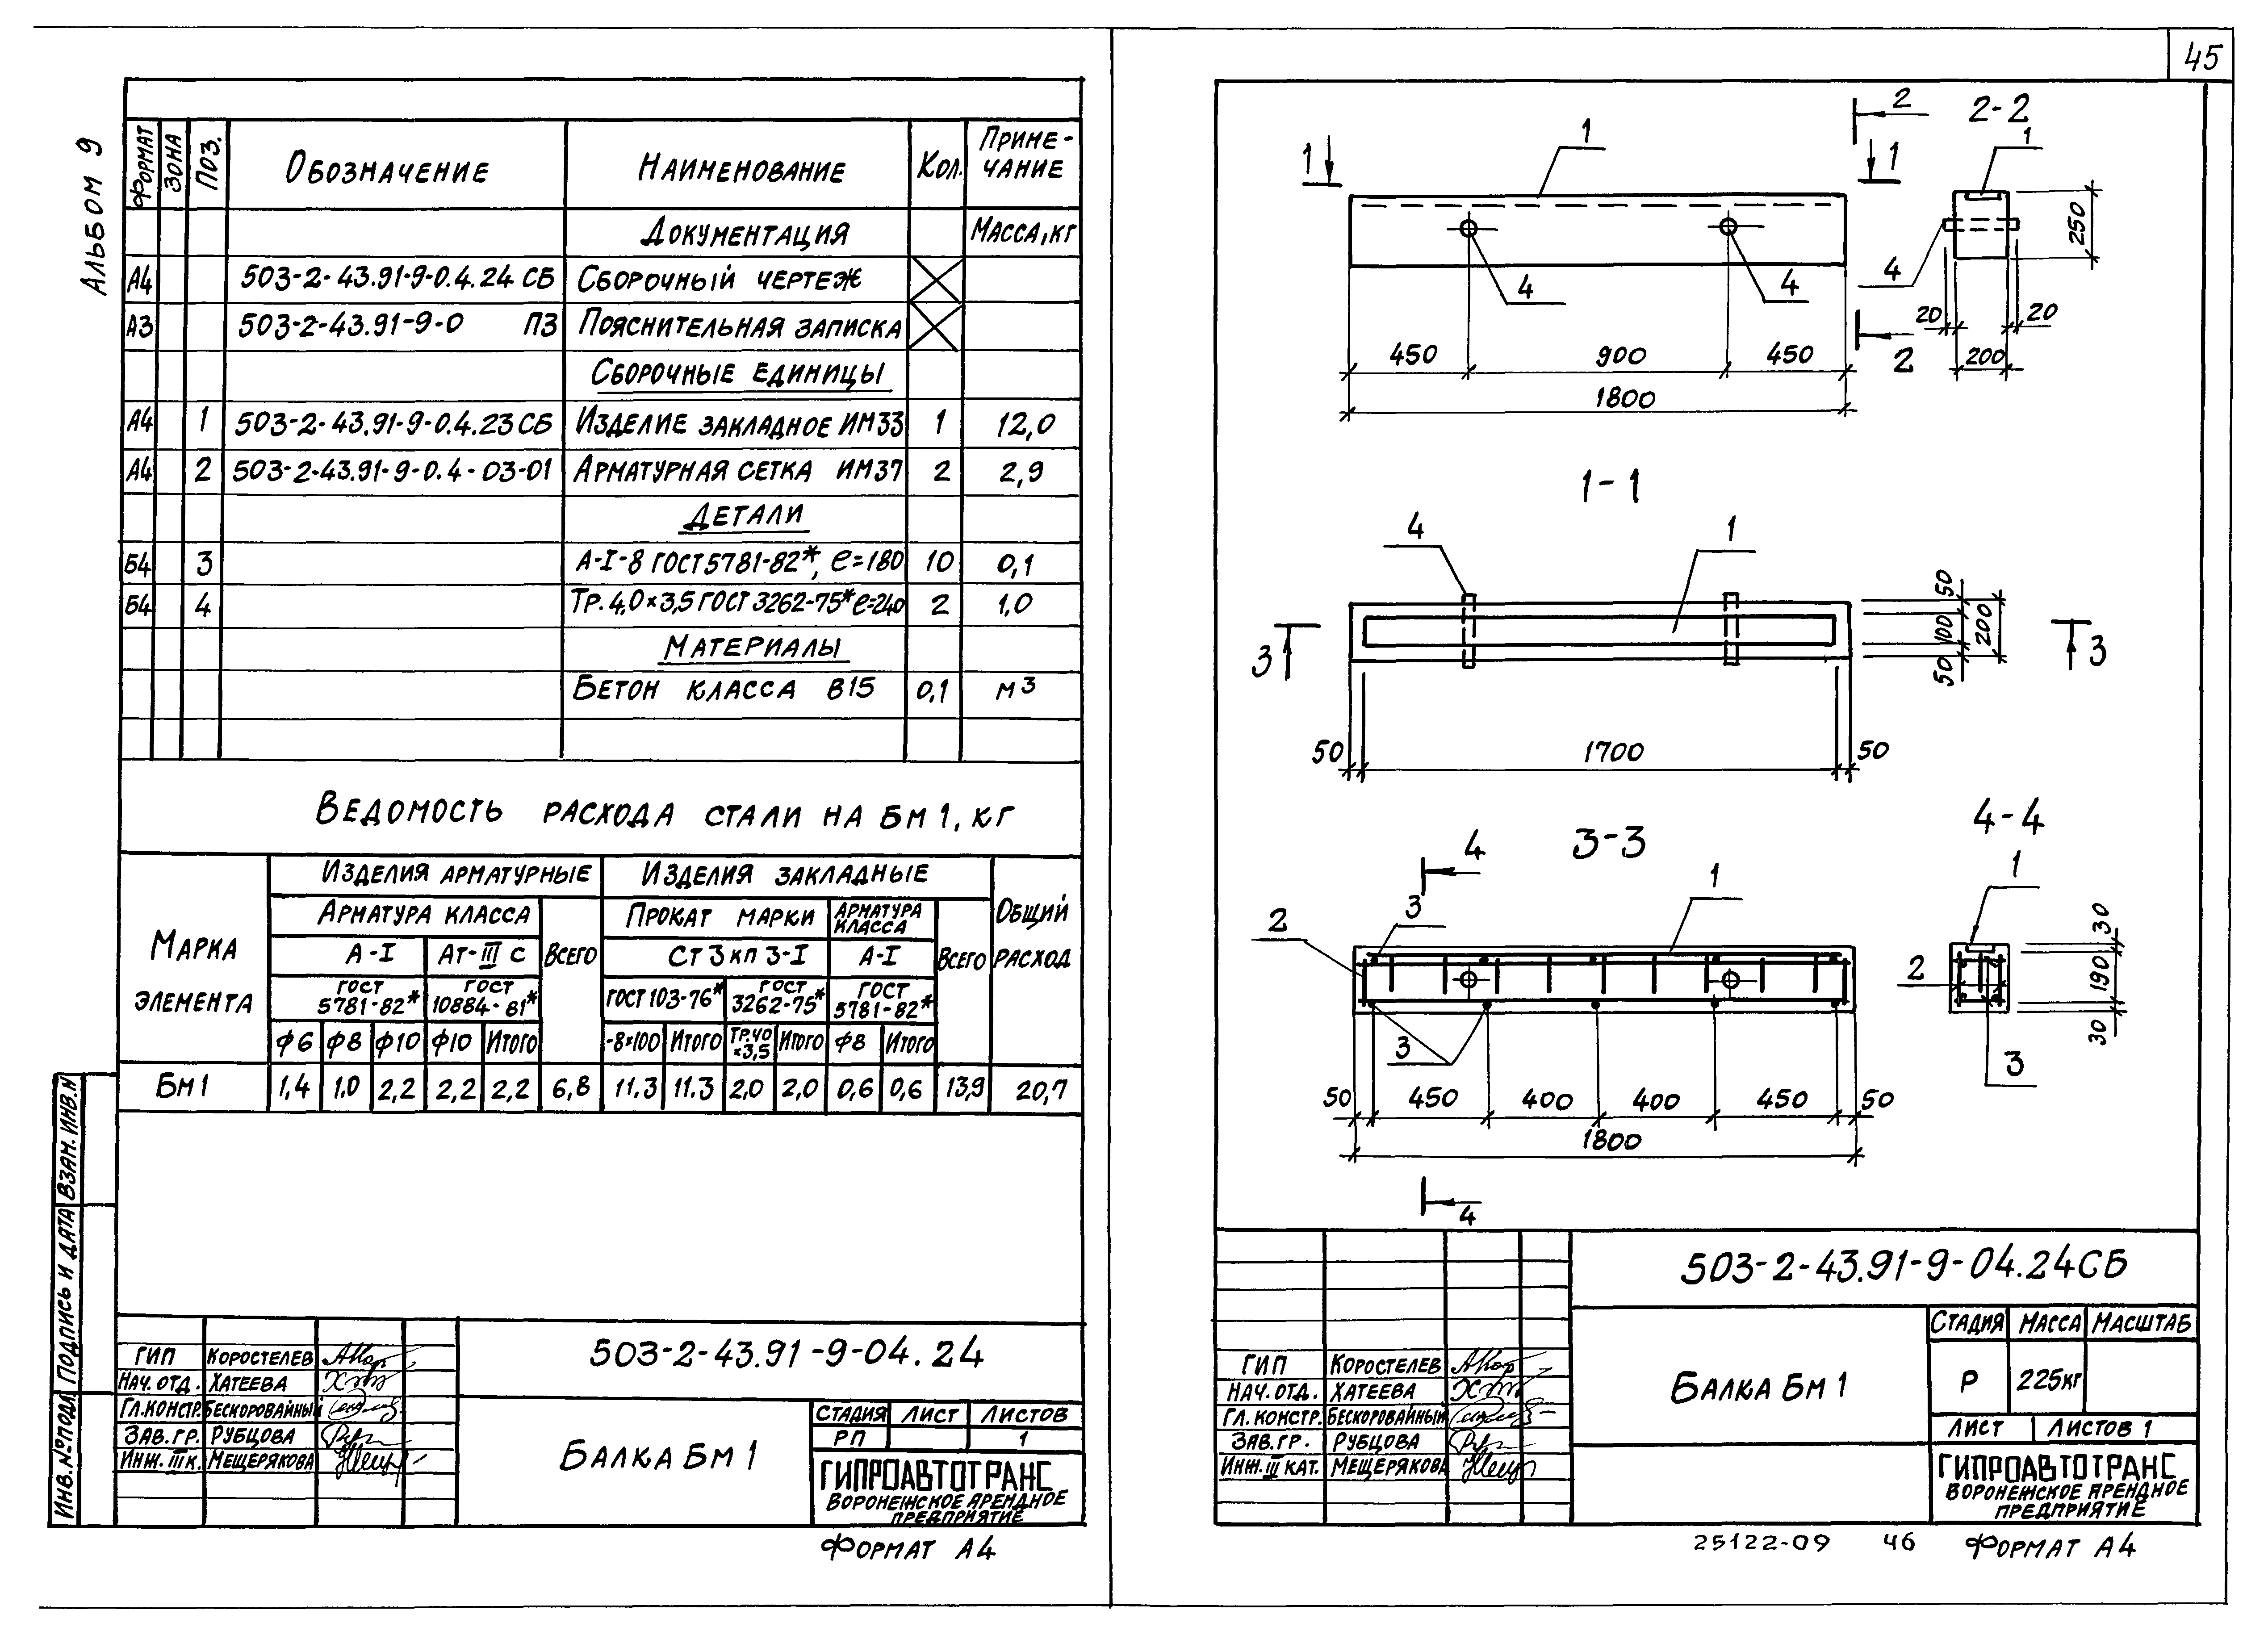 45
Альбом 9
Формат Зона Поз. Обозначение Наименование Кол. Приме-чание
Документация Масса, кг
А4 503-2-43.91-9-0.4.24 СБ Сборочный чертеж
А3 503-2-43.91-9-0 ПЗ Пояснительная записка
Сборочные единицы
А4 1 503-2-43.91-9-0.4.23 СБ Изделие закладное ИМ33 1 12,0
А4 2 503-2-43.91-9-0.4-03-01 Арматурная сетка ИМ37 2 2,9
Детали
Б4 3 А-I-8 ГОСТ 5781-82*, ℓ=180 10 0,1
Б4 4 Тр. 4,0×3,5 ГОСТ 3262-75* ℓ=240 2 1,0
Материалы
Бетон класса В15 0,1 м3
Ведомость расхода стали на Бм 1, кг
Марка элемента
Изделия арматурные Изделия закладные Общий расход
Арматура класса Всего Прокат марки Арматура класса Всего
А-I Ат-III с Ст 3 кп 3-I А-I
ГОСТ 5781-82* ГОСТ 10884-81* ГОСТ 103-76* ГОСТ 3262-75* ГОСТ 5781-82*
ф6 ф8 ф10 ф10 Итого -8×100 Итого Тр.40×3,5 Итого ф8 Итого
Бм 1 1,4 1.0 2,2 2,2 2,2 6,8 11.3 11.3 2,0 2,0 0,6 0,6 13,9 20,7
Инв.№ подл Подпись и дата Взам. инв.н
ГИП Коростелев
Нач. отд. Хатеева
Гл.констр. Бескоровайный
Зав. гр. Рубцова
Инж. III к. Мещерякова
503-2-43.91-9-04.24
Балка Бм 1
Стадия Лист Листов
РП 1
ГИПРОАВТОТРАНС
Воронежское арендное
предприятие
Формат А4
2 2-2
1 1 1 1
4 4 4
250
20 20
450 900 450 2 200
1800
1-1
4 1
50
100 200
50
3 3
50 1700 50
3-3 4-4
4 1 1
2 3 2
30
190
30
3 3
50 450 400 400 450 50
1800
4
503-2-43.91-9-04.24СБ
ГИП Коростелев
Нач. отд. Хатеева
Гл. констр. Бескоровайный
Зав. гр. Рубцова
Инж. III кат. Мещерякова
Балка Бм 1
Стадия Масса Масштаб
Р 225кг
Лист Листов 1
ГИПРОАВТОТРАНС
Воронежское арендное
предприятие
25122-09 46 Формат А4